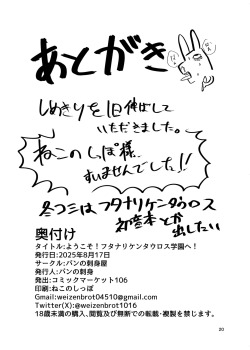 あとがき
しめきりを1日伸ばして
いただきました。
ねこのしっぽ様
すいませんでした!!
冬コミはフタナリケンタウロス
初音本とか
出したい
奥付け
タイトル:ようこそ！フタナリケンタウロス学園へ！
発行日:2025年8月17日
サークル:パンの刺身屋
発行人:パンの刺身
発出:コミックマーケット106
印刷:ねこのしっぽ
Gmail:weizenbrot04510@gmail.com
Twitter(X):@weizenbrot1016
18歳未満の購入、閲覧及び無断での転載・複製を禁じます。
20